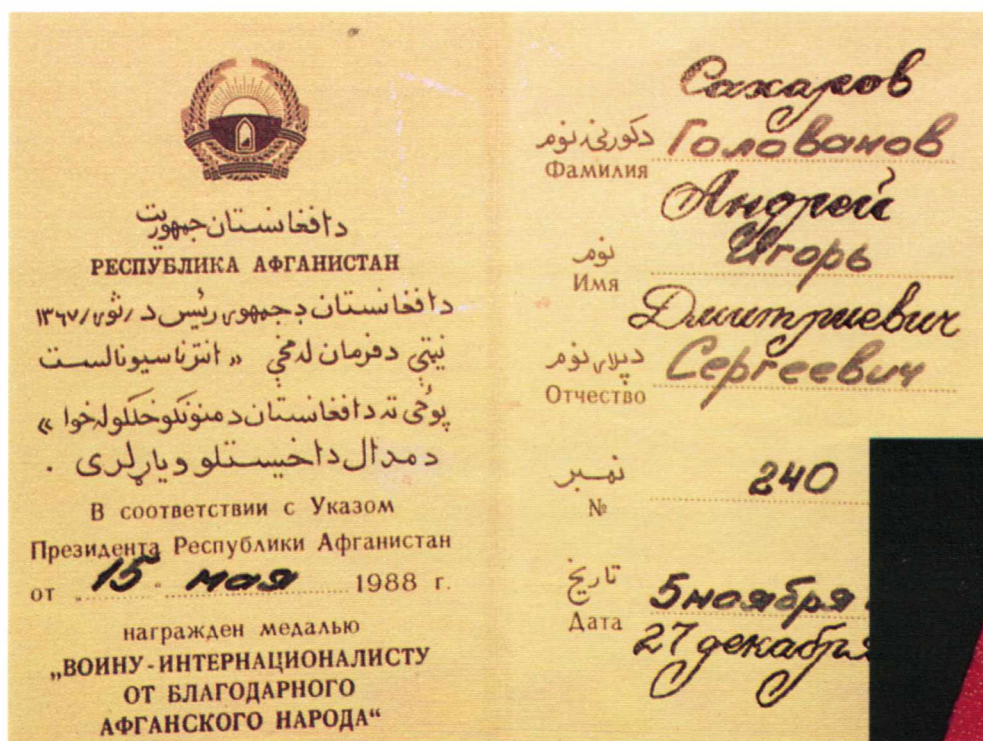 دافغانستان جمهوریت
РЕСПУБЛИКА АФГАНИСТАН
دافغانستان دجمهوری رئیس د /ثور/ ۱۳۶۷
نیټې دفرمان له مخې « انترناسیونالست
پوځی ته دافغانستان دمنونکو خلکو له خوا »
دمدال داخیستلو ویاړلری .
В соответствии с Указом
Президента Республики Афганистан
от „15“ мая 1988 г.
награжден медалью
„ВОИНУ-ИНТЕРНАЦИОНАЛИСТУ
ОТ БЛАГОДАРНОГО
АФГАНСКОГО НАРОДА“
Сахаров
دکورنی نوم Голованов
Фамилия
Андрей
نوم Игорь
Имя
Дмитриевич
دپلار نوم Сергеевич
Отчество
نمبر 240
№
تاریخ 5 ноября
Дата
27 декабря